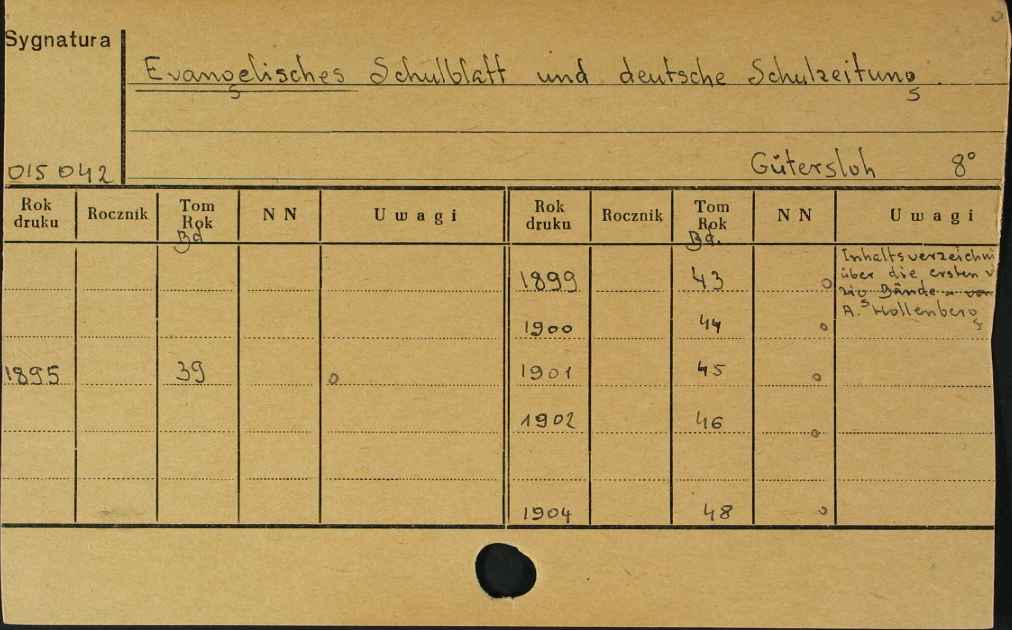 Sygnatura
Evangelisches Schulblatt und deutsche Schulzeitung.
Gütersloh 8°
015 042
Rok druku Rocznik Tom Rok Bd NN Uwagi Rok druku Rocznik Tom Rok Bd. NN Uwagi
1899 43 Inhaltsverzeichni
über die ersten v
zig Bände von
A. Hollenberg
1900 44
1895 39 1901 45
1902 46
1904 48